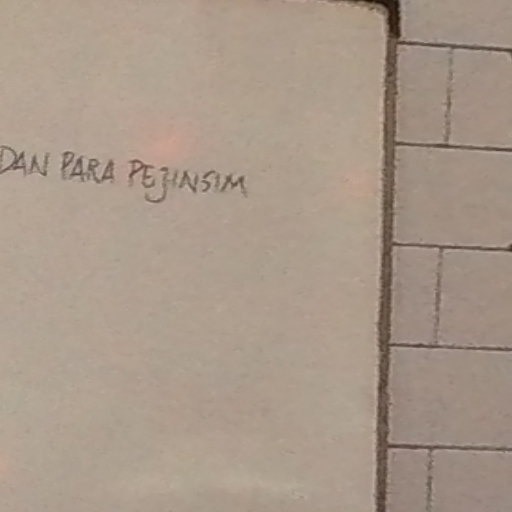 DAN PARA PEJINSIM